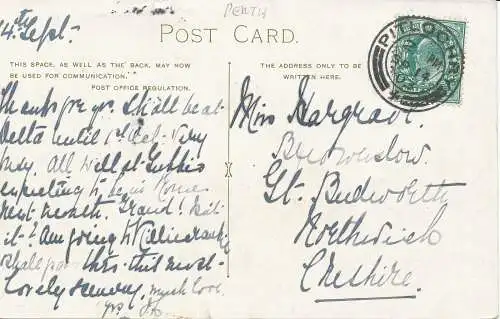 PERTH
14th Sept.
POST CARD.
THIS SPACE, AS WELL AS THE BACK, MAY NOW
BE USED FOR COMMUNICATION.
POST OFFICE REGULATION.
THE ADDRESS ONLY TO BE
WRITTEN HERE.
PITLOCHRY
Thanks for yrs. Shall be at
Delta until 1st Oct. Very
busy. All well at
expecting to
next month. Grand! Isn't
it? Am going to Killiecrankie
Shall pass thro. this most
lovely scenery. much love
yrs
Miss Hargrave.
Gt. Budworth
Northwich
Cheshire.